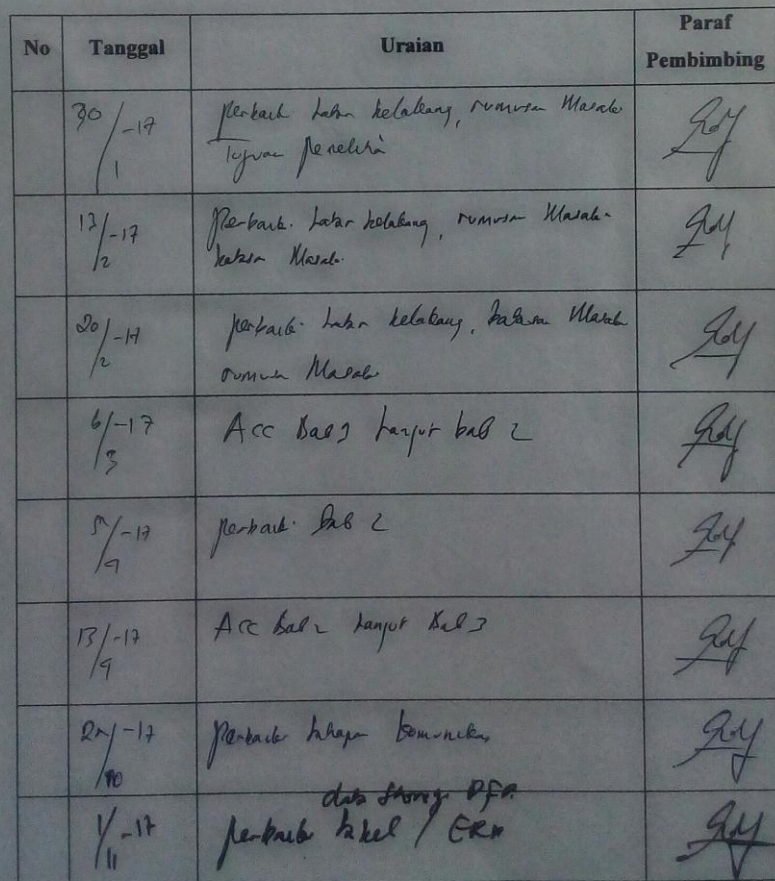 No Tanggal Uraian Paraf Pembimbing
30/1-17 perbaiki latar belakang, rumusan Masalah
Tujuan penelitian
13/2-17 Perbaiki latar belakang, rumusan Masalah
batasan Masalah
20/2-17 perbaiki latar belakang, batasan Masalah
rumusan Masalah
6/3-17 Acc Bab 1 Lanjut bab 2
-17 perbaiki bab 2
13/9-17 Acc Bab 2 Lanjut Bab 3
-17 Perbaiki tahapan komunikasi
data DFD
1/11-17 perbaiki tabel / ERD